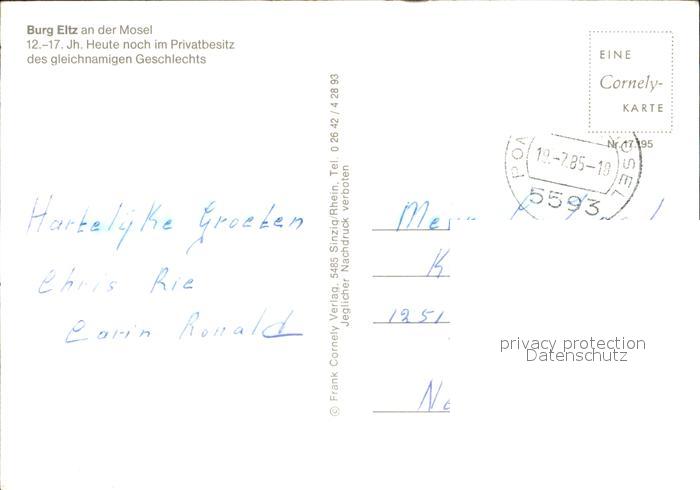 Burg Eltz an der Mosel
12.–17. Jh. Heute noch im Privatbesitz
des gleichnamigen Geschlechts
Hartelijke Groeten
Chris Rie
Carin Ronald
© Frank Cornely Verlag, 5485 Sinzig/Rhein, Tel. 0 26 42 / 4 28 93
Jeglicher Nachdruck verboten
EINE
Cornely-
KARTE
Nr. 17.195
5593
K
1251
privacy protection
Datenschutz